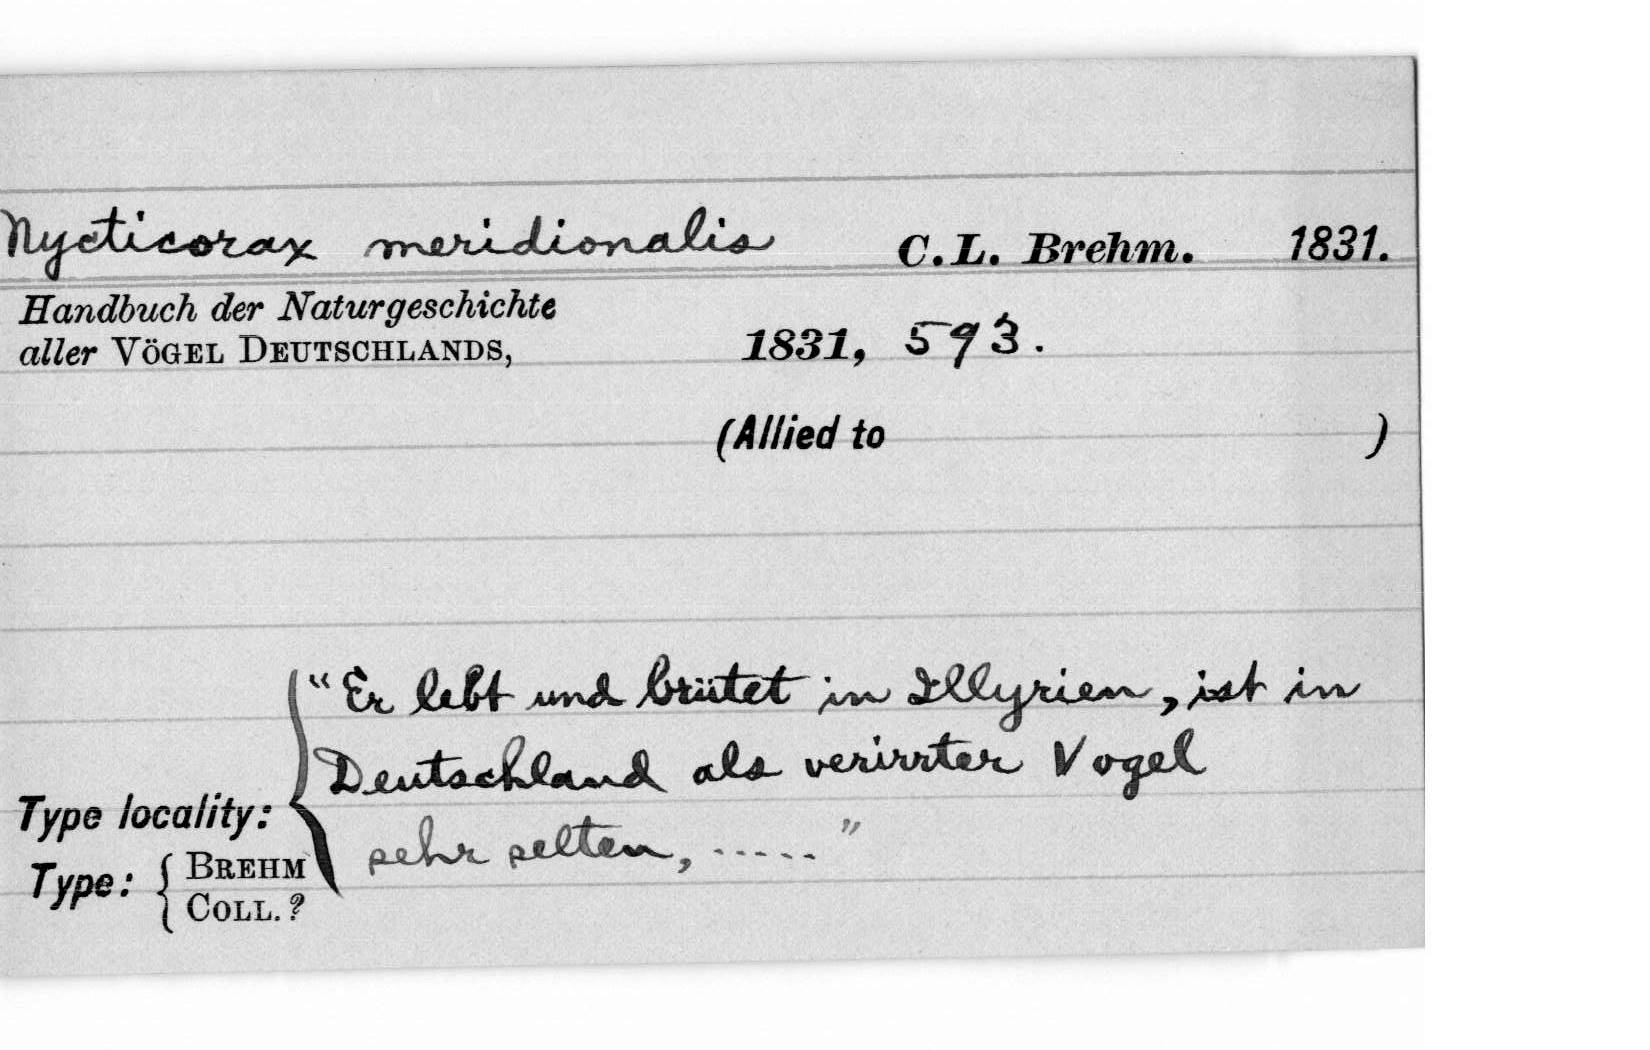 Nycticorax meridionalis C.L. Brehm. 1831.
Handbuch der Naturgeschichte
aller VÖGEL DEUTSCHLANDS, 1831, 593.
(Allied to )
"Er lebt und brütet in Illyrien, ist in
Deutschland als verirrter Vogel
sehr selten, ......"
Type locality:
Type: { BREHM
COLL. ?